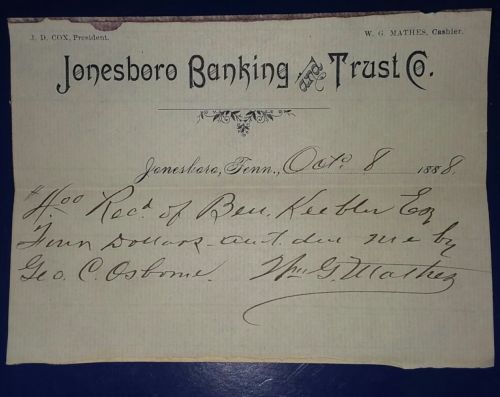 J. D. COX, President. W. G. MATHES, Cashier.
Jonesboro Banking and Trust Co.
Jonesboro, Tenn., Oct. 8 1888.
$4.00 Recd of Ben. Keebler Esq
Four Dollars amt. due me by
Geo. C. Osborne. Wm G. Mathes